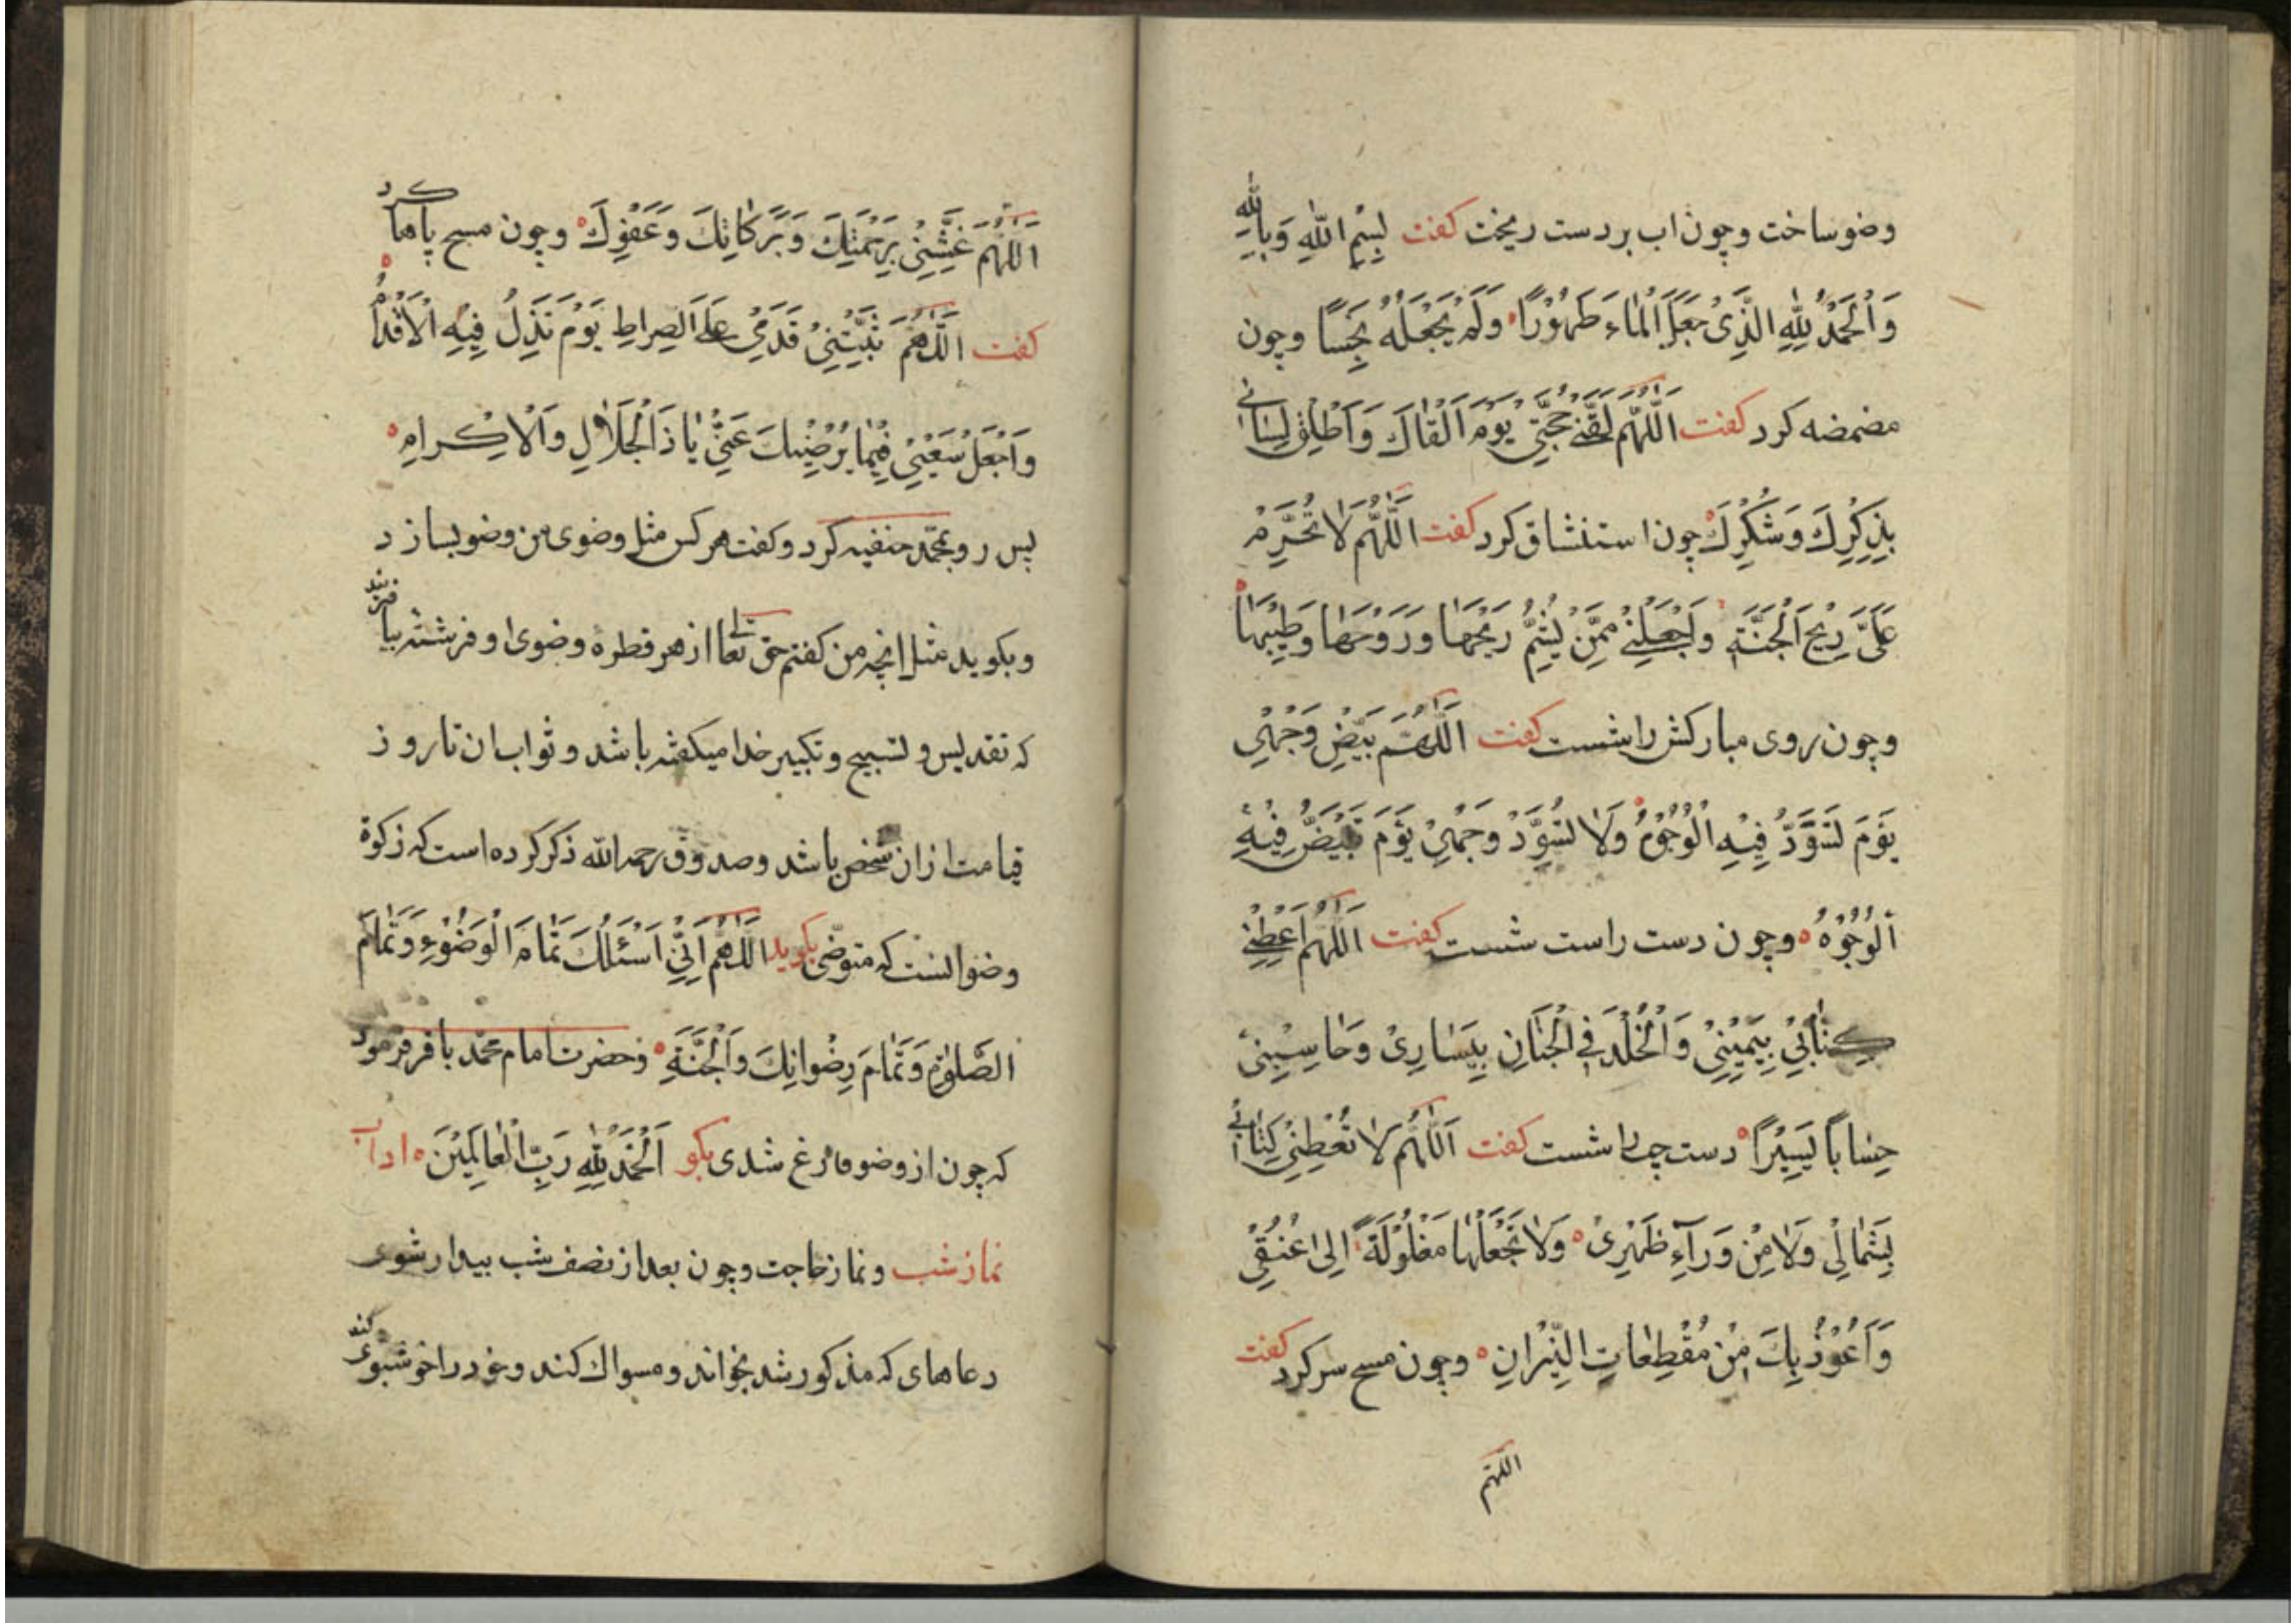 وضو ساخت و چون اب بر دست ریخت کفت بِسْمِ اللّٰهِ وَبِاللّٰهِ
وَالْحَمْدُ لِلّٰهِ الَّذِیْ جَعَلَ الْمَاءَ طَهُوْرًا وَلَمْ یَجْعَلْهُ نَجِسًا و چون
مضمضه کرد کفت اَللّٰهُمَّ لَقِّنِیْ حُجَّتِیْ یَوْمَ اَلْقَاكَ وَاَطْلِقْ لِسَانِی
بِذِکْرِكَ وَشُکْرِكَ چون استنشاق کرد کفت اَللّٰهُمَّ لَا تُحَرِّمْ
عَلَیَّ رِیْحَ الْجَنَّةِ وَاجْعَلْنِیْ مِمَّنْ یَشُمُّ رِیْحَهَا وَرَوْحَهَا وَطِیْبَهَا
و چون روی مبارکش را شست کفت اَللّٰهُمَّ بَیِّضْ وَجْهِیْ
یَوْمَ تَسْوَدُّ فِیْهِ الْوُجُوْهُ وَلَا تُسَوِّدْ وَجْهِیْ یَوْمَ تَبْیَضُّ فِیْهِ
اَلْوُجُوْهُ و چون دست راست شست کفت اَللّٰهُمَّ اَعْطِنِیْ
کِتَابِیْ بِیَمِیْنِیْ وَالْخُلْدَ فِی الْجِنَانِ بِیَسَارِیْ وَحَاسِبْنِیْ
حِسَابًا یَسِیْرًا دست چپ را شست کفت اَللّٰهُمَّ لَا تُعْطِنِیْ کِتَابِی
بِشِمَالِیْ وَلَا مِنْ وَرَآءِ ظَهْرِیْ وَلَا تَجْعَلْهَا مَغْلُوْلَةً اِلٰی عُنُقِیْ
وَاَعُوْذُ بِكَ مِنْ مُقَطِّعَاتِ النِّیْرَانِ و چون مسح سر کرد کفت
اللّهم
اَللّٰهُمَّ غَشِّنِیْ بِرَحْمَتِكَ وَبَرَکَاتِكَ وَعَفْوِكَ و چون مسح پاها کرد
کفت اَللّٰهُمَّ ثَبِّتْنِیْ قَدَمِیْ عَلَی الصِرَاطِ یَوْمَ تَذِلُ فِیْهِ الْاَقْدَامُ
وَاجْعَلْ سَعْیِیْ فِیْمَا یُرْضِیْكَ عَنِّیْ یَا ذَا الْجَلَالِ وَالْاِکْرَامِ
پس رو بمحمّد حنفیه کرد و کفت هر کس مثل وضوی من وضو بسازد
و بکوید مثل انچه من کفتم حق تعالی از هر قطرهٔ وضوی او فرشتهٔ بیافریند
که تقدیس و تسبیح و تکبیر خدا میکفته باشد و ثواب ان تا روز
قیامت از ان شخص باشد و صدوق رحمه الله ذکر کرده است که زکوة
وضو انست که متوضّی بکوید اَللّٰهُمَّ اِنِّیْ اَسْئَلُكَ تَمَامَ الْوُضُوْءِ وَتَمَامَ
الصَّلٰوةِ وَتَمَامَ رِضْوَانِكَ وَالْجَنَّةِ و حضرت امام محمّد باقر فرمود
که چون از وضو فارغ شدی بکو اَلْحَمْدُ لِلّٰهِ رَبِّ الْعَالَمِیْنَ اداب
نماز شب و نماز حاجت و چون بعد از نصف شب بیدار شوی
دعاهای که مذکور شد بخواند و مسواك کند و خود را خوشبوی کند